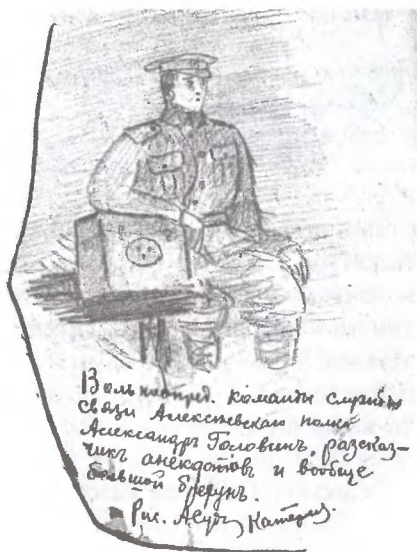 Вольноопред. команды службы
связи Алексѣевскаго полка
Александръ Головинъ, разсказ-
чикъ анекдотовъ и вообще
большой брехунъ.
Рис.